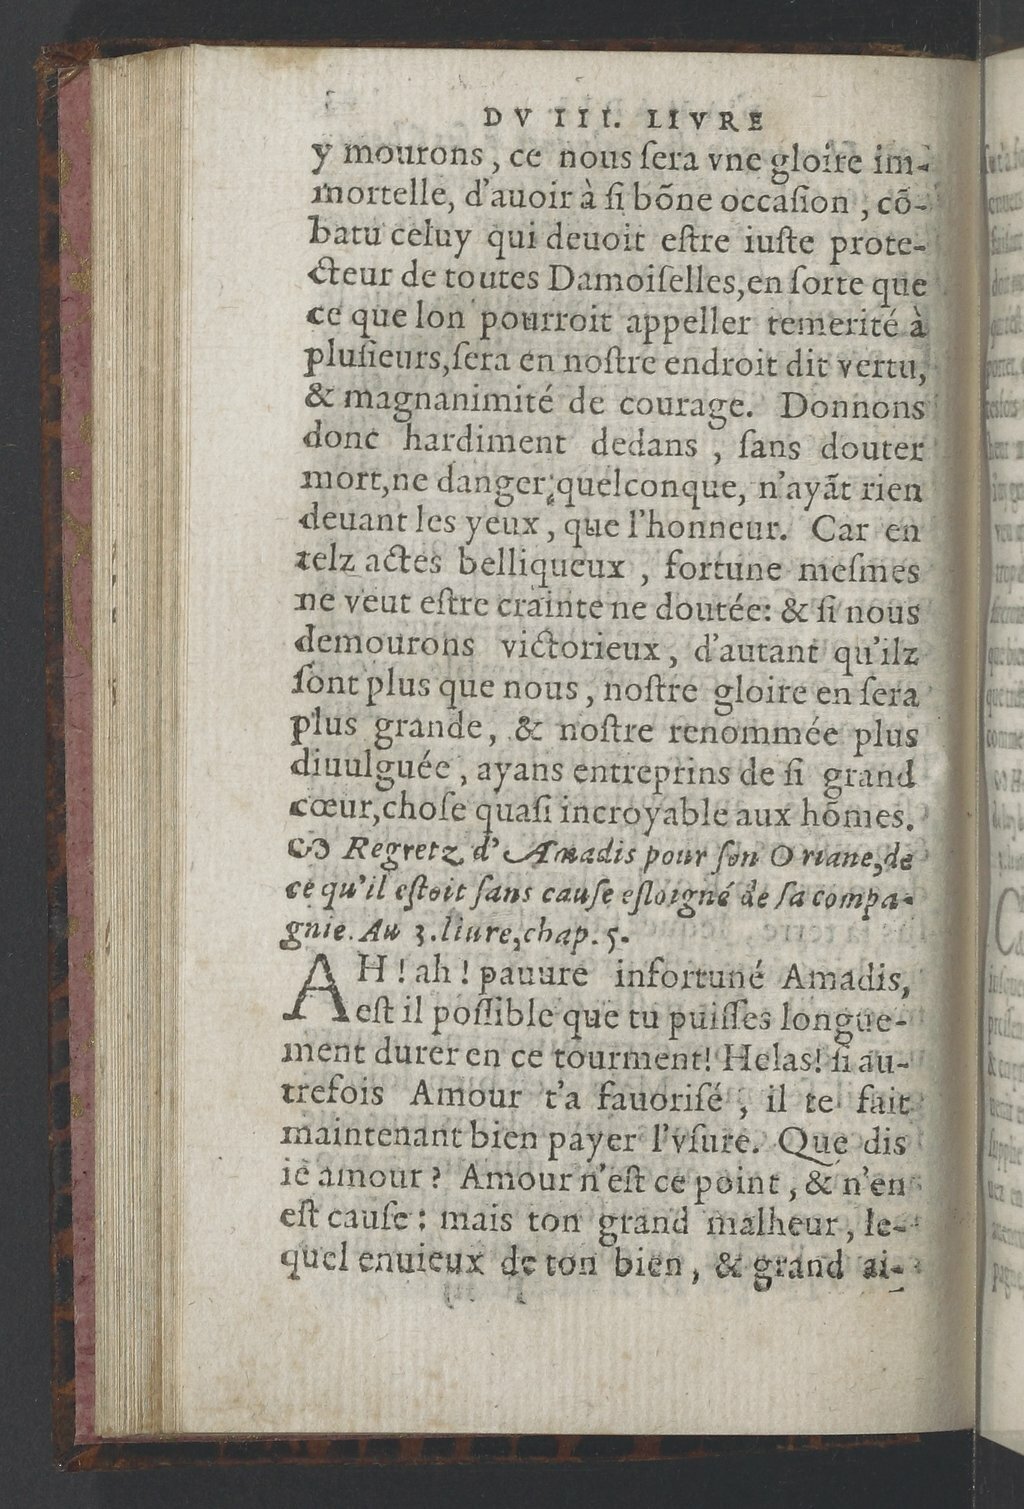 DV III. LIVRE
y mourons, ce nous ſera vne gloire im-
mortelle, d'auoir à ſi bõne occaſion, cõ-
batu celuy qui deuoit eſtre iuſte prote-
cteur de toutes Damoiſelles, en ſorte que
ce que lon pourroit appeller temerité à
pluſieurs, ſera en noſtre endroit dit vertu,
& magnanimité de courage. Donnons
donc hardiment dedans, ſans douter
mort, ne danger quelconque, n'ayãt rien
deuant les yeux, que l'honneur. Car en
telz actes belliqueux, fortune meſmes
ne veut eſtre crainte ne doutée: & ſi nous
demourons victorieux, d'autant qu'ilz
ſont plus que nous, noſtre gloire en ſera
plus grande, & noſtre renommée plus
diuulguée, ayans entreprins de ſi grand
cœur, choſe quaſi incroyable aux hõmes.
Regretz d'Amadis pour ſon Oriane, de
ce qu'il eſtoit ſans cauſe eſloigné de ſa compa-
gnie. Au 3. liure, chap. 5.
AH! ah! pauure infortuné Amadis,
eſt il poſſible que tu puiſſes longue-
ment durer en ce tourment! Helas! ſi au-
trefois Amour t'a fauoriſé, il te fait
maintenant bien payer l'vſure. Que dis
ie amour? Amour n'eſt ce point, & n'en
eſt cauſe: mais ton grand malheur, le-
quel enuieux de ton bien, & grand ai-